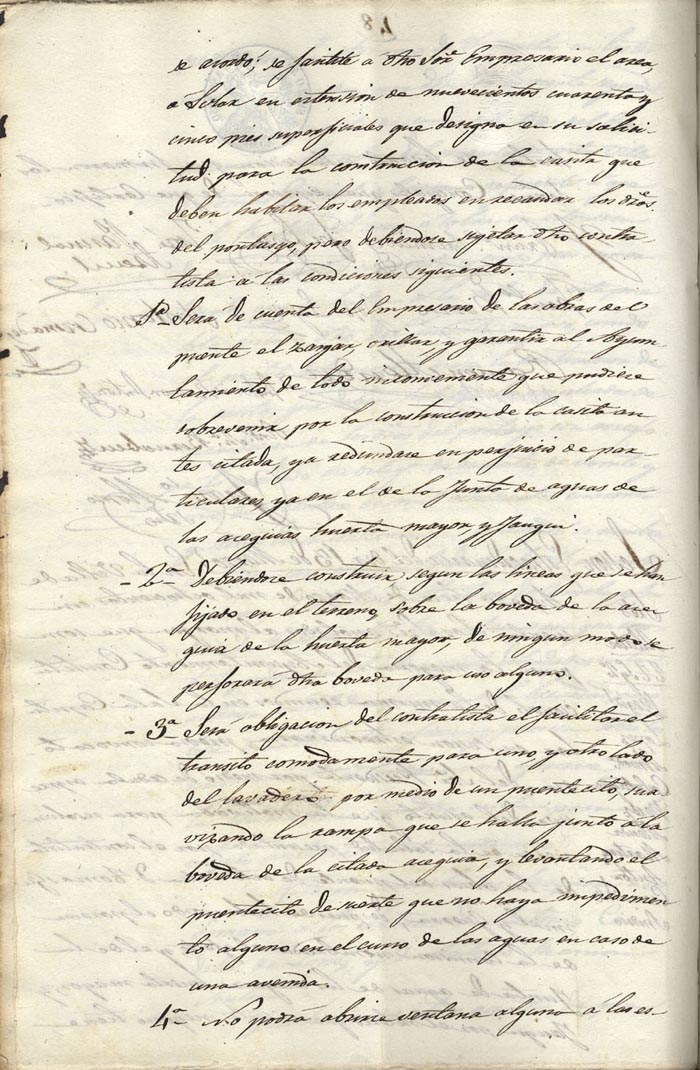 se acordó; se facilite a dho Sor Empresario el area,
ó Solar en estension de nuevecientos cuarenta y
cinco pies superficiales que designa en su solici-
tud para la construccion de la casita que
deben habitar los empleados en recaudar los dros
del pontasgo, pero debiendose sugetar dho contra-
tista á las condiciones siguientes.
1a Será de cuenta del Empresario de las obras del
puente el zanjar, orillar, y garantir al Ayun-
tamiento de todo inconveniente que pudiere
sobrevenir por la construccion de la casita an-
tes citada, ya redundase en perjuicio de par-
ticulares, ya en el de la Junta de aguas de
las acequias huerta mayor, y
- 2a Debiendose construir segun las lineas que se han
fijado en el terreno, sobre la boveda de la ace-
quia de la huerta mayor, de ningun modo se
perforará dha boveda para uso alguno.
- 3a Será obligacion del contratista el facilitar el
transito comodamente para uno, y otro lado
del lavadero, por medio de un puentecito, sua-
vizando la rampa que se halla junto a la
boveda de la citada acequia, y levantando el
puentecito de suerte que no haya impedimen-
to alguno en el curso de las aguas en caso de
una avenida.
4a No podrá abrirse ventana alguna á las es-